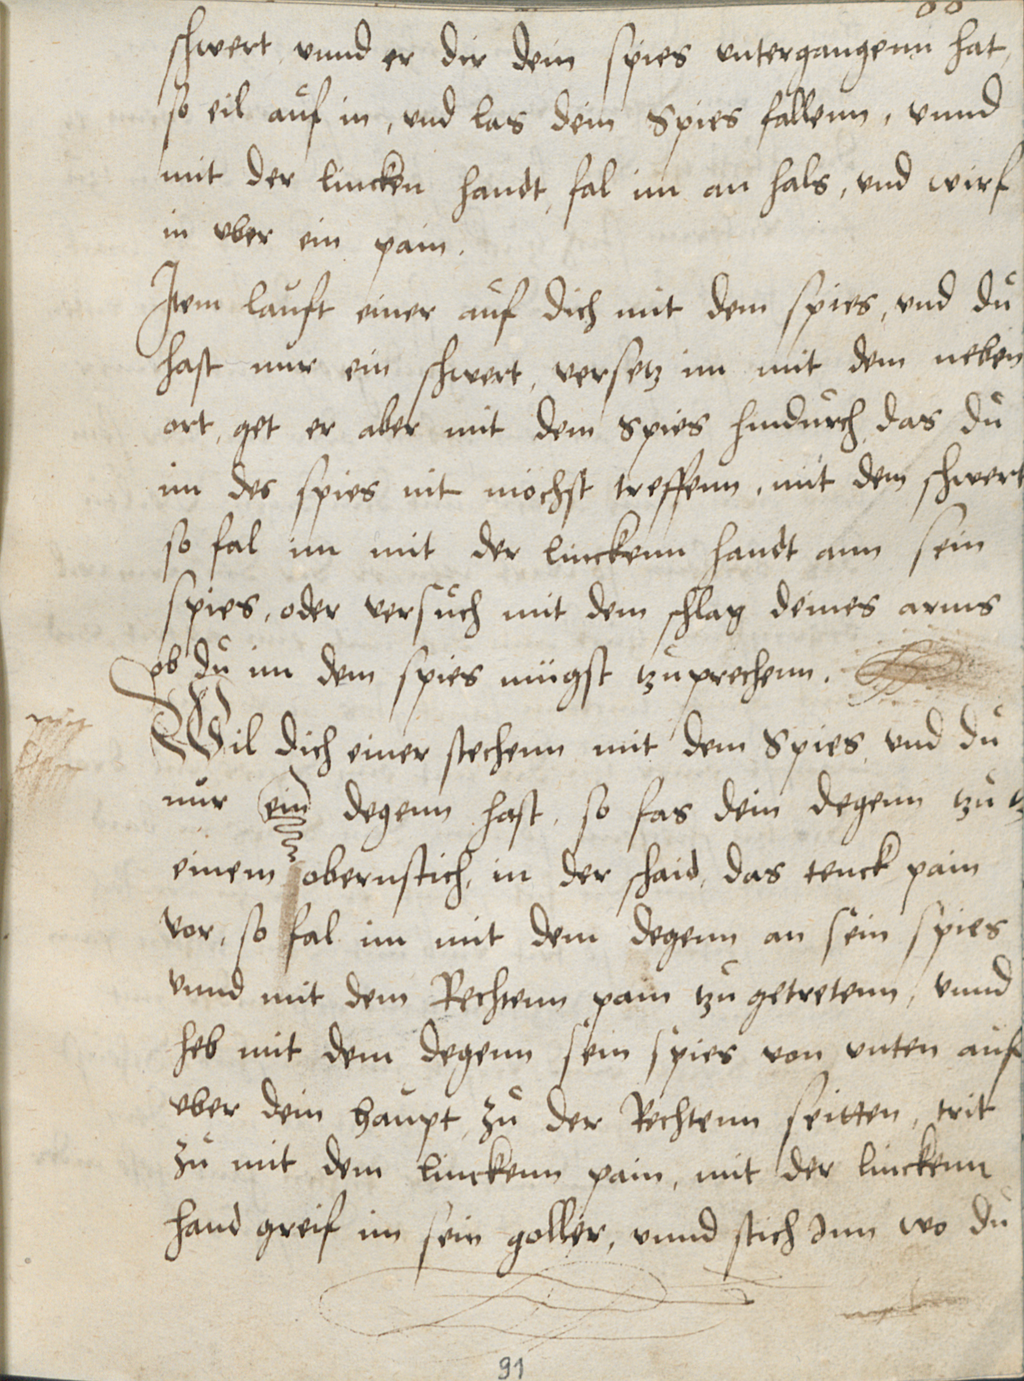 schwert vnnd er dir dein spies vntergangenn hat,
so eil aůf in, vnd las dein Spies fallenn, vnnd
mit der lincken handt, fal im an hals, vnd wirf
in vber ein pain.
Item laůft einer aůf dich mit dem spies, vnd dů
hast nur ein schwert, versetz im mit dem neben
ort, get er aber mit dem Spies hindůrch, das dů
im des spies nit mochst treffenn, mit dem schwert
so fal im mit der linckenn handt ann sein
spies, oder versůch mit dem schlag deines arms
ob dů im dem spies mügst tzůprechenn.
Wil dich einer stechenn mit dem Spies, vnd dů
nůr ein degenn hast, so fas dein degenn tzů
einem obernstich, in der schaid, das tenck pain
vor, so fal im mit dem degenn an sein spies
vnnd mit dem Rechtenn pain tzů getretenn, vnnd
heb mit dem degenn sein spies von vnten aůf
vber dein haůpt, zů der Rechtenn seitten, trit
zů mit dem linckenn pain, mit der linckenn
hand greif im sein goller, vnnd stich Inn wo dů
91